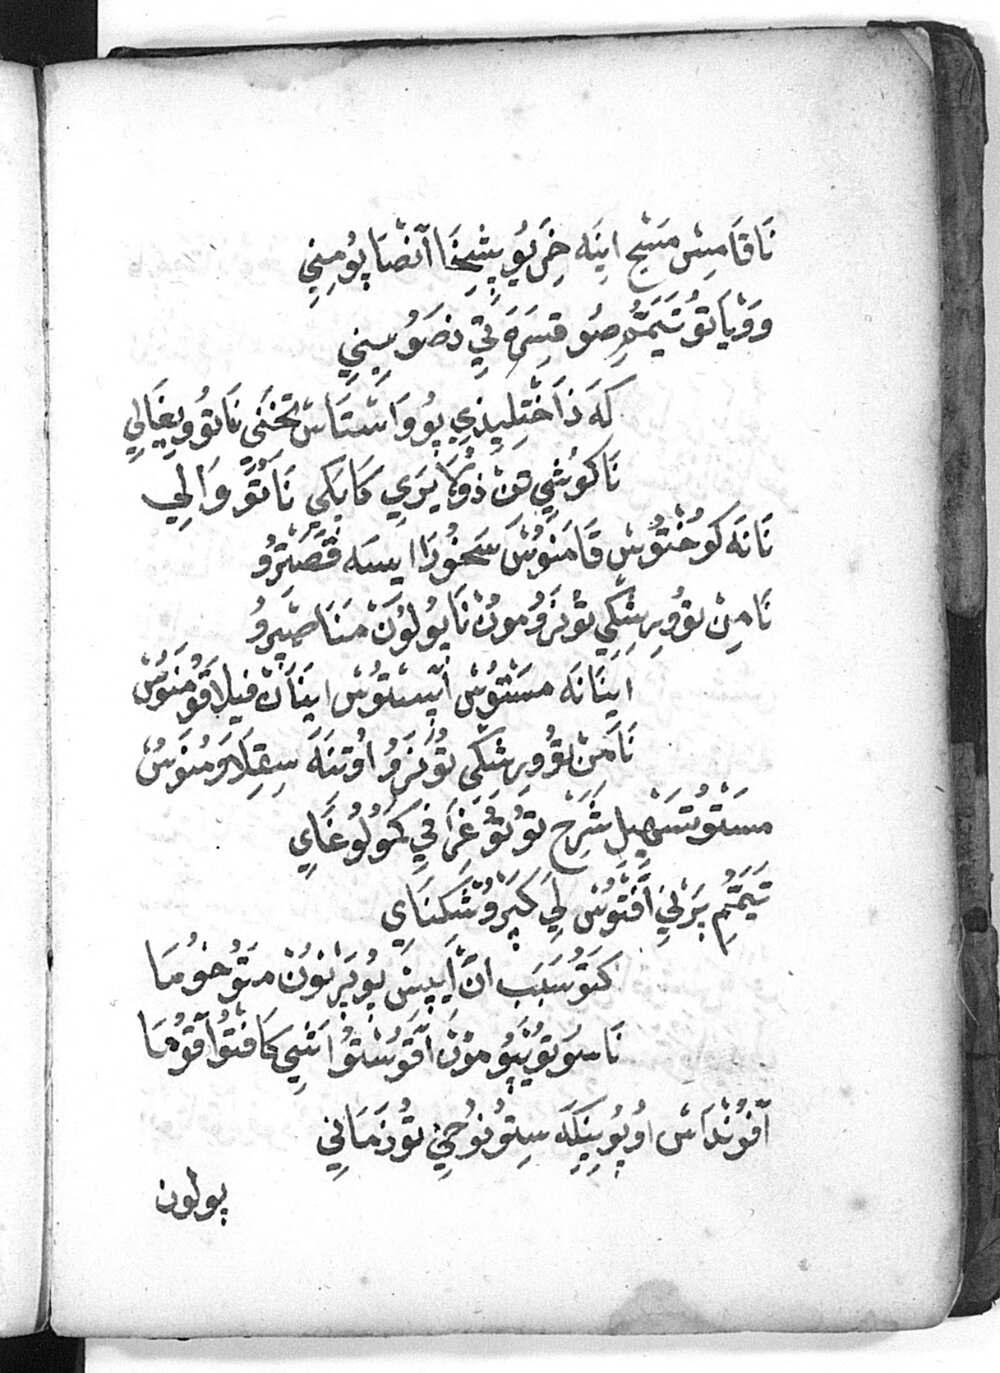 نَاقَامِسْ مَسْحِ اينَه خِرَ يُو پِشِخَا آنْضَا پُو مِنِي
وَوْيَاتُو تَيَمُّمِ صُو قِسَرَه تِي دْضَوُسِينِي
كَه ذَاخْتِلِيذِي پُو وَاسْتَاسْ تَخَنَي نَاتُو وِيغَالِي
نَاكُوشِي تَنْ يَرَي كَابَكِي نَاتُو وَالِي
نَانَه كُوخْتُوسْ قَامَنُوسْ سَخُورَا ايسَه قَصَتْرُو
نَامِنْ تُو وِرِسْكِي تُو نَرُو مُونْ نَا پُولُونْ مَنَا صْپِرُو
اينَانَه مَسْتُوسْ آپِسْتُوسْ اينَانْ فِيلَاقُومَنُوسْ
نَامِنْ تُو وِرِسْكِي تُو نَرُو اُوتِنَه سِقِلَاوُمَنُوسْ
مَسْتُو تَسْهِيلِ شَرْحِ تُو تُو غْرَافِي كَمُولُوغَايِ
تَيَمُّمِ پَرْنِي آفْتُوسْ لِي كَپَرُوشْكَنَايِ
كَتُو سَبَبْ انْ آيِپَسْ پُو پَرْنُونْ مَتُو خُومَا
نَاسَوتُويْپُو مُونْ آقُوسْتُو اَسِي كَافْتُو آقُومَا
آفُونْدَاسْ اُوپُو پِيكَه سِتُونُوحِي تُو زَمَانِي
پولون